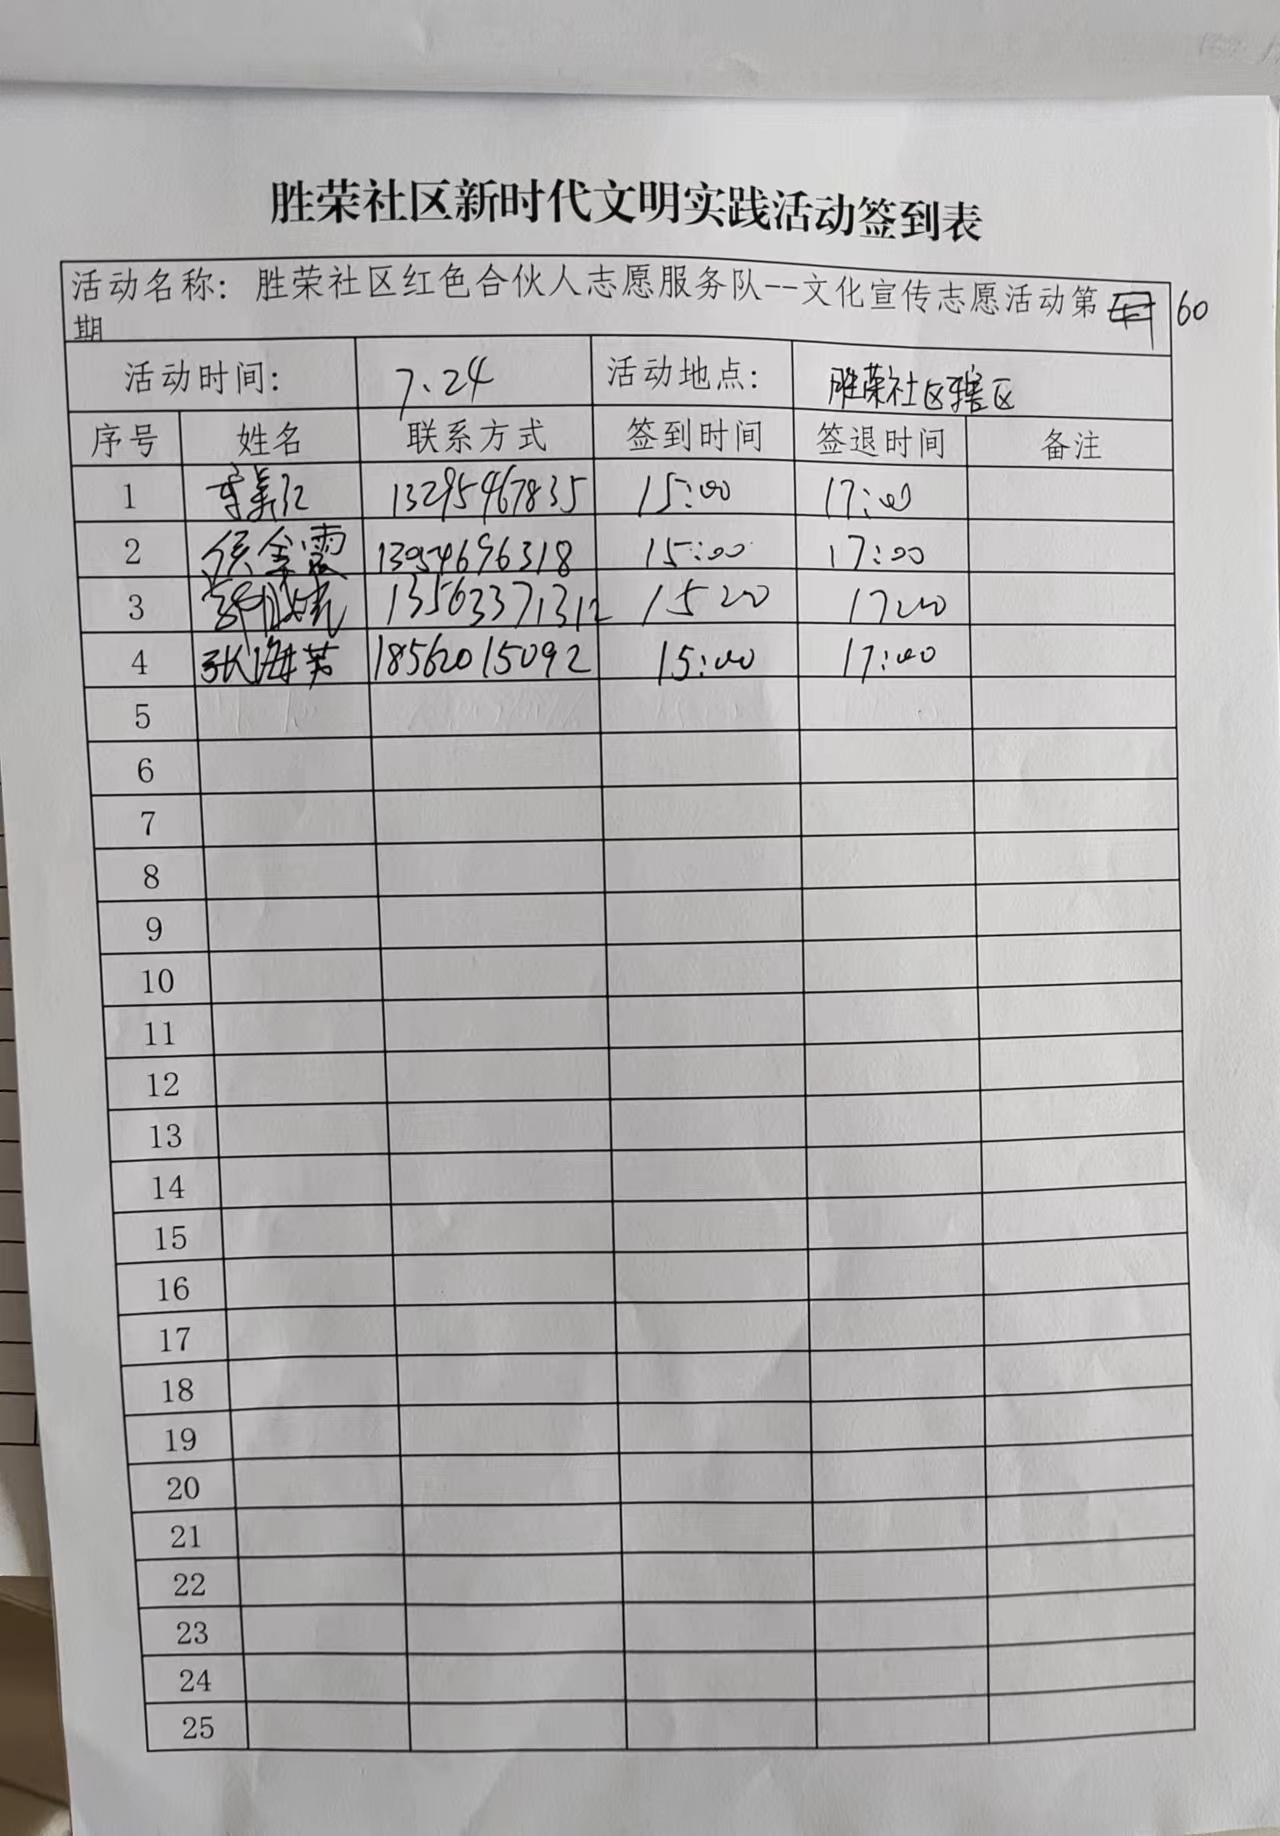 胜荣社区新时代文明实践活动签到表
活动名称：胜荣社区红色合伙人志愿服务队--文化宣传志愿活动第 60
期
活动时间： 7.24 活动地点： 胜荣社区辖区
序号 姓名 联系方式 签到时间 签退时间 备注
1 13295467835 15:00 17:00
2 侯金霞 13954696318 15:00 17:00
3 13563371312 1500 1700
4 张海芳 18562015092 15:00 17:00
5
6
7
8
9
10
11
12
13
14
15
16
17
18
19
20
21
22
23
24
25